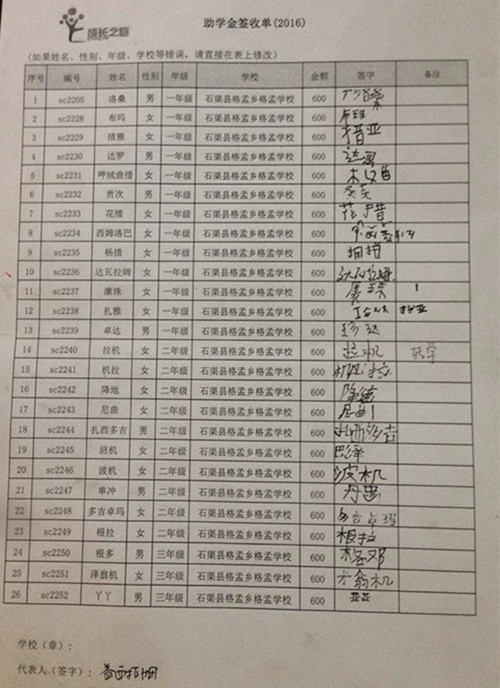 成长之旅
助学金签收单(2016)
(如果姓名、性别、年级、学校等错误，请直接在表上修改)
序号 编号 姓名 性别 年级 学校 金额 签字 备注
1 sc2205 洛桑 男 一年级 石渠县格孟乡格孟学校 600
2 sc2228 布玛 女 一年级 石渠县格孟乡格孟学校 600
3 sc2229 措雅 女 一年级 石渠县格孟乡格孟学校 600 措亚
4 sc2230 达罗 男 一年级 石渠县格孟乡格孟学校 600 达罗
5 sc2231 呷绒曲措 女 一年级 石渠县格孟乡格孟学校 600
6 sc2232 贡次 男 一年级 石渠县格孟乡格孟学校 600
7 sc2233 花措 女 一年级 石渠县格孟乡格孟学校 600 花措
8 sc2234 西姆洛巴 女 一年级 石渠县格孟乡格孟学校 600
9 sc2235 杨措 女 一年级 石渠县格孟乡格孟学校 600
10 sc2236 达瓦拉姆 女 一年级 石渠县格孟乡格孟学校 600 达瓦拉姆
11 sc2237 康珠 女 一年级 石渠县格孟乡格孟学校 600
12 sc2238 扎雅 女 一年级 石渠县格孟乡格孟学校 600
13 sc2239 卓达 男 一年级 石渠县格孟乡格孟学校 600
14 sc2240 拉机 女 二年级 石渠县格孟乡格孟学校 600 拉机 转学
15 sc2241 机拉 女 二年级 石渠县格孟乡格孟学校 600 机拉
16 sc2242 降地 女 二年级 石渠县格孟乡格孟学校 600
17 sc2243 尼曲 女 二年级 石渠县格孟乡格孟学校 600 尼曲
18 sc2244 扎西多吉 男 二年级 石渠县格孟乡格孟学校 600 扎西多吉
19 sc2245 班机 女 二年级 石渠县格孟乡格孟学校 600
20 sc2246 波机 女 二年级 石渠县格孟乡格孟学校 600 波机
21 sc2247 单冲 男 二年级 石渠县格孟乡格孟学校 600
22 sc2248 多吉卓玛 女 二年级 石渠县格孟乡格孟学校 600 多吉卓玛
23 sc2249 根拉 女 二年级 石渠县格孟乡格孟学校 600 根拉
24 sc2250 根多 男 三年级 石渠县格孟乡格孟学校 600
25 sc2251 泽翁机 女 三年级 石渠县格孟乡格孟学校 600 才翁机
26 sc2252 丫丫 男 三年级 石渠县格孟乡格孟学校 600 亚亚
学校（章）：
代表人（签字）：